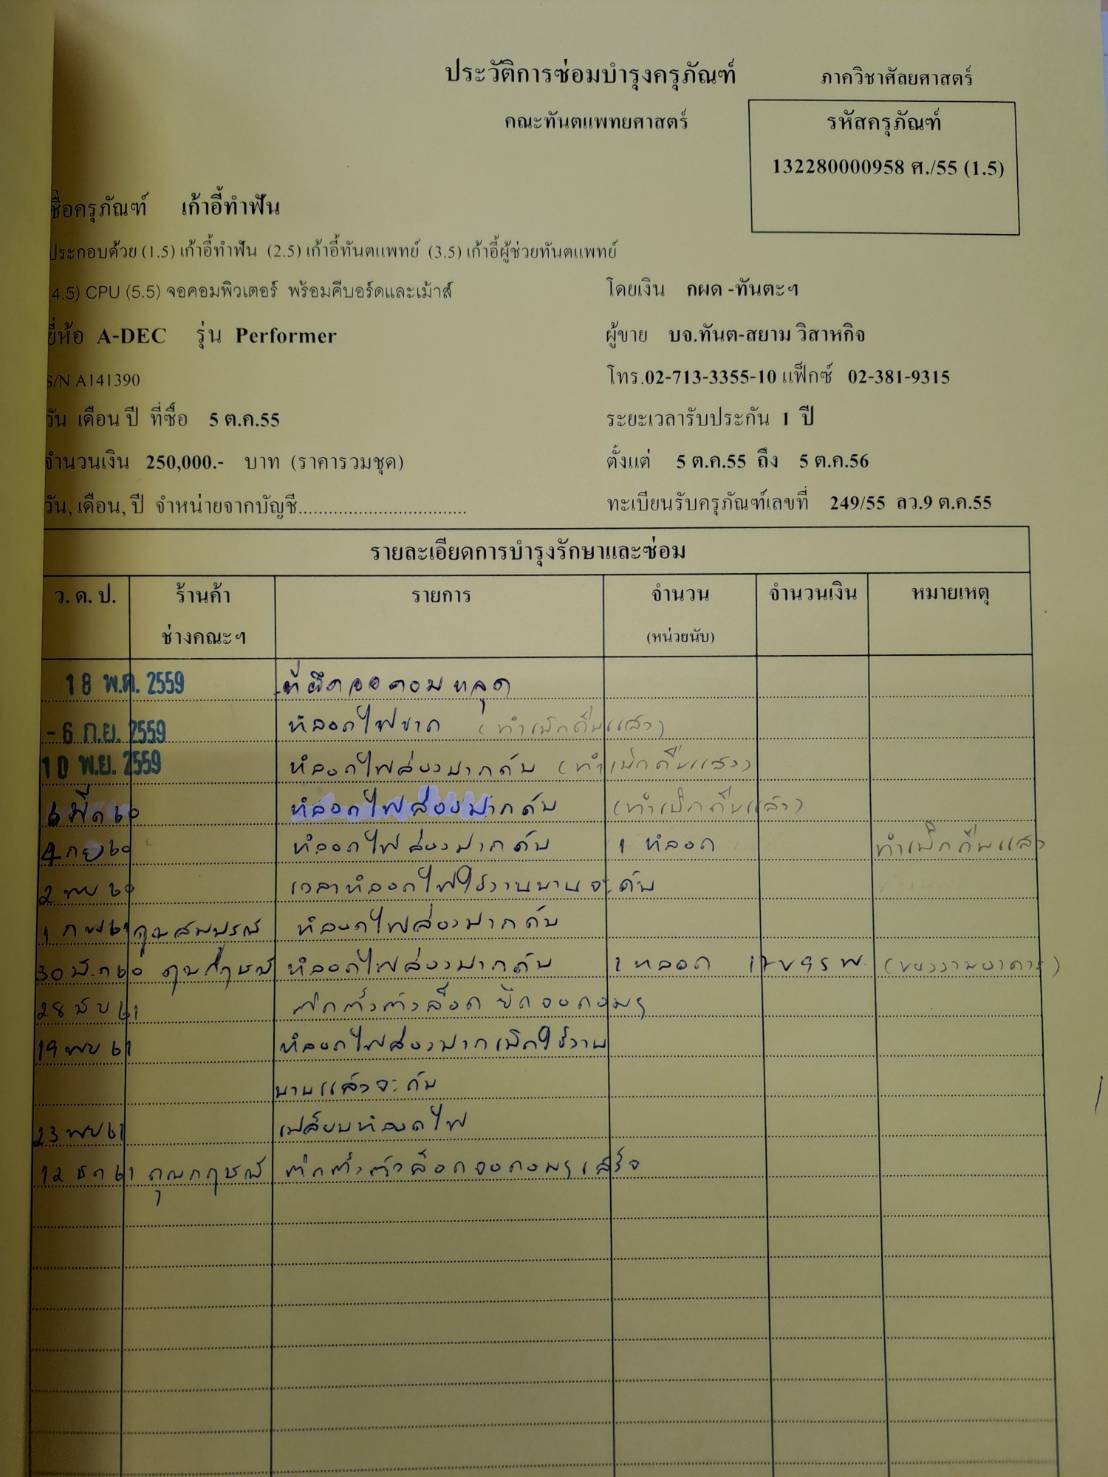 ประวัติการซ่อมบำรุงครุภัณฑ์ ภาควิชาศัลยศาสตร์
คณะทันตแพทยศาสตร์ รหัสครุภัณฑ์
132280000958 ศ./55 (1.5)
ชื่อครุภัณฑ์ เก้าอี้ทำฟัน
ประกอบด้วย (1.5) เก้าอี้ทำฟัน (2.5) เก้าอี้ทันตแพทย์ (3.5) เก้าอี้ผู้ช่วยทันตแพทย์
4.5) CPU (5.5) จอคอมพิวเตอร์ พร้อมคีบอร์ดและเม้าส์ โดยเงิน กผด -ทันตะฯ
ยี่ห้อ A-DEC รุ่น Performer ผู้ขาย บจ.ทันต-สยาม วิสาหกิจ
S/N A141390 โทร.02-713-3355-10 แฟ็กซ์ 02-381-9315
วัน เดือน ปี ที่ซื้อ 5 ต.ค.55 ระยะเวลารับประกัน 1 ปี
จำนวนเงิน 250,000.- บาท (ราคารวมชุด) ตั้งแต่ 5 ต.ค.55 ถึง 5 ต.ค.56
วัน, เดือน, ปี จำหน่ายจากบัญชี................................. ทะเบียนรับครุภัณฑ์เลขที่ 249/55 ลว.9 ต.ค.55
รายละเอียดการบำรุงรักษาและซ่อม
ว. ด. ป. ร้านค้า รายการ จำนวน จำนวนเงิน หมายเหตุ
ช่างคณะฯ (หน่วยนับ)
18 พ.ค. 2559 ที่ยึดจอคอมหลุด
- 6 ก.ย. 2559 หลอดไฟขาด (ทำเบิกคืนแล้ว)
10 พ.ย. 2559 หลอดไฟส่องปากดับ (ทำเบิกคืนแล้ว)
6 มีค 60 หลอดไฟส่องปากดับ (ทำเบิกคืนแล้ว)
4 กย 60 หลอดไฟส่องปากดับ 1 หลอด ทำเบิกคืนแล้ว
2 พย 60 เวลาหลอดไฟใช้งานนานจะดับ
1 กพ 61 คุณสมบรณ์ หลอดไฟส่องปากดับ
30 60 หลอดไฟส่องปากดับ 1 หลอด (ของงานอาคาร)
28 61 ติดตั้งตัวล็อค ยึดจอคอมฯ
19 พย 61 หลอดไฟส่องปากเปิดใช้งาน
นานแล้วจะดับ
23 พย 61 เปลี่ยนหลอดไฟ
12 ธค 61 คุณกฤษณ์ ติดตั้งตัวล็อคจอคอมฯเสร็จ